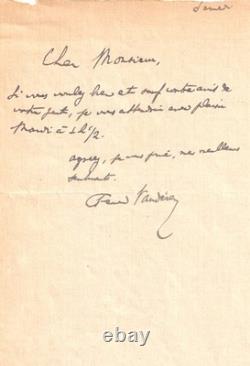 Samedi
Cher Monsieur,
Si vous voulez bien et sauf contre avis de
votre part, je vous attendrai avec plaisir
Mardi à 2h 1/2.
agréez, je vous prie, mes meilleurs
sentiments.
Fernand Vandérem
© ebay.com